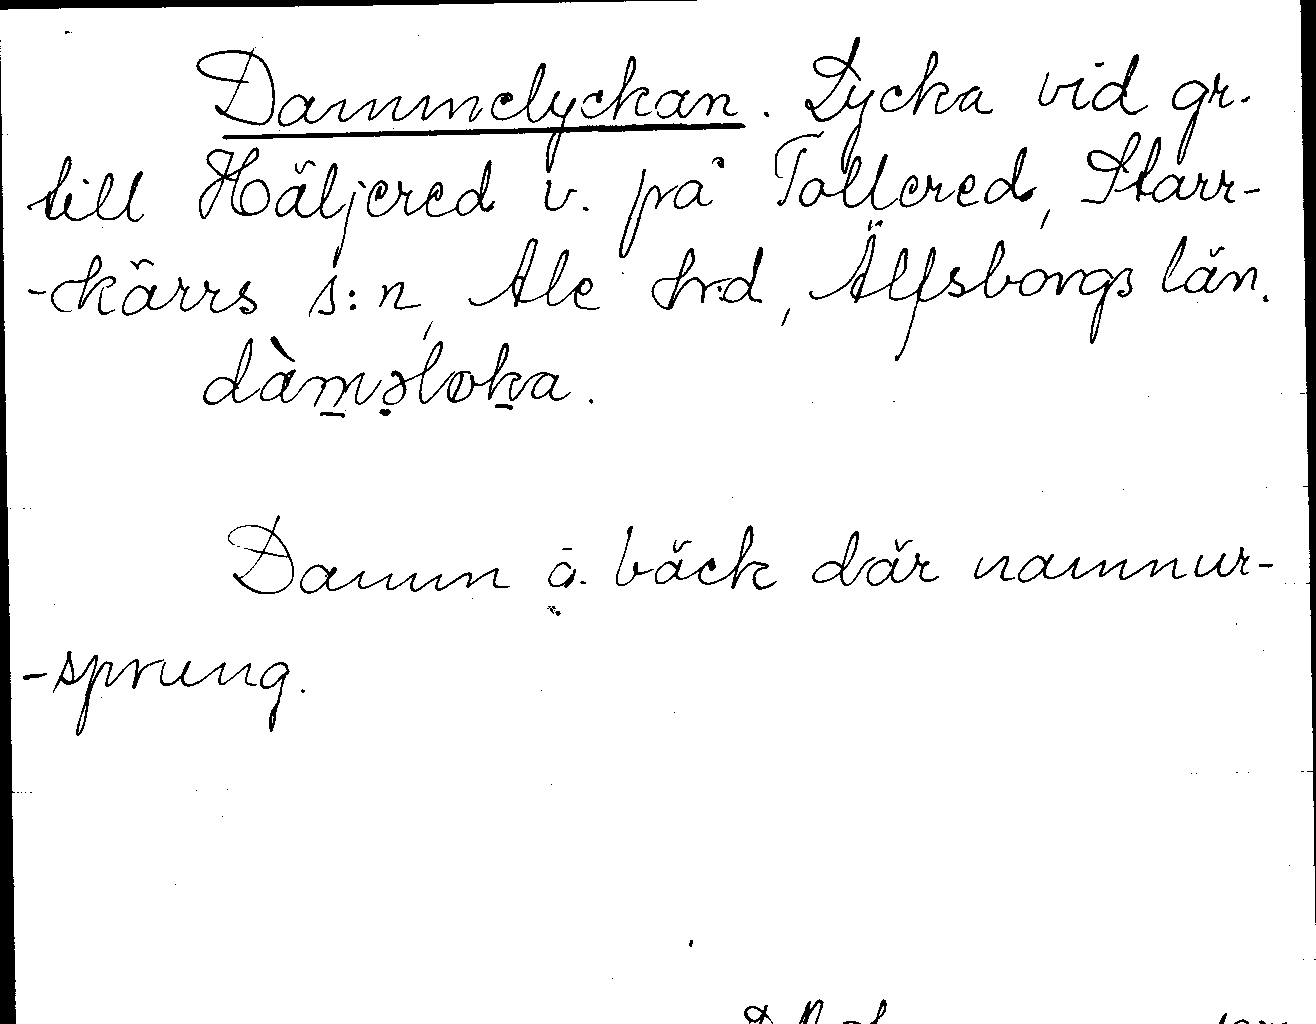 Dammelyckan. Lycka vid gr.
till Häljered v. på Tollered, Starr-
-kärrs s:n, Ale hrd, Älfsborgs län.
dàm̲ə̣lok̲a.
Damm o. bäck där namnur-
-sprung.